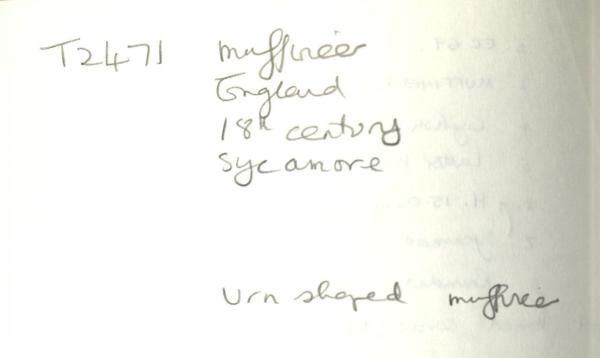 T2471 muffineer
England
18th century
Sycamore
Urn shaped muffineer